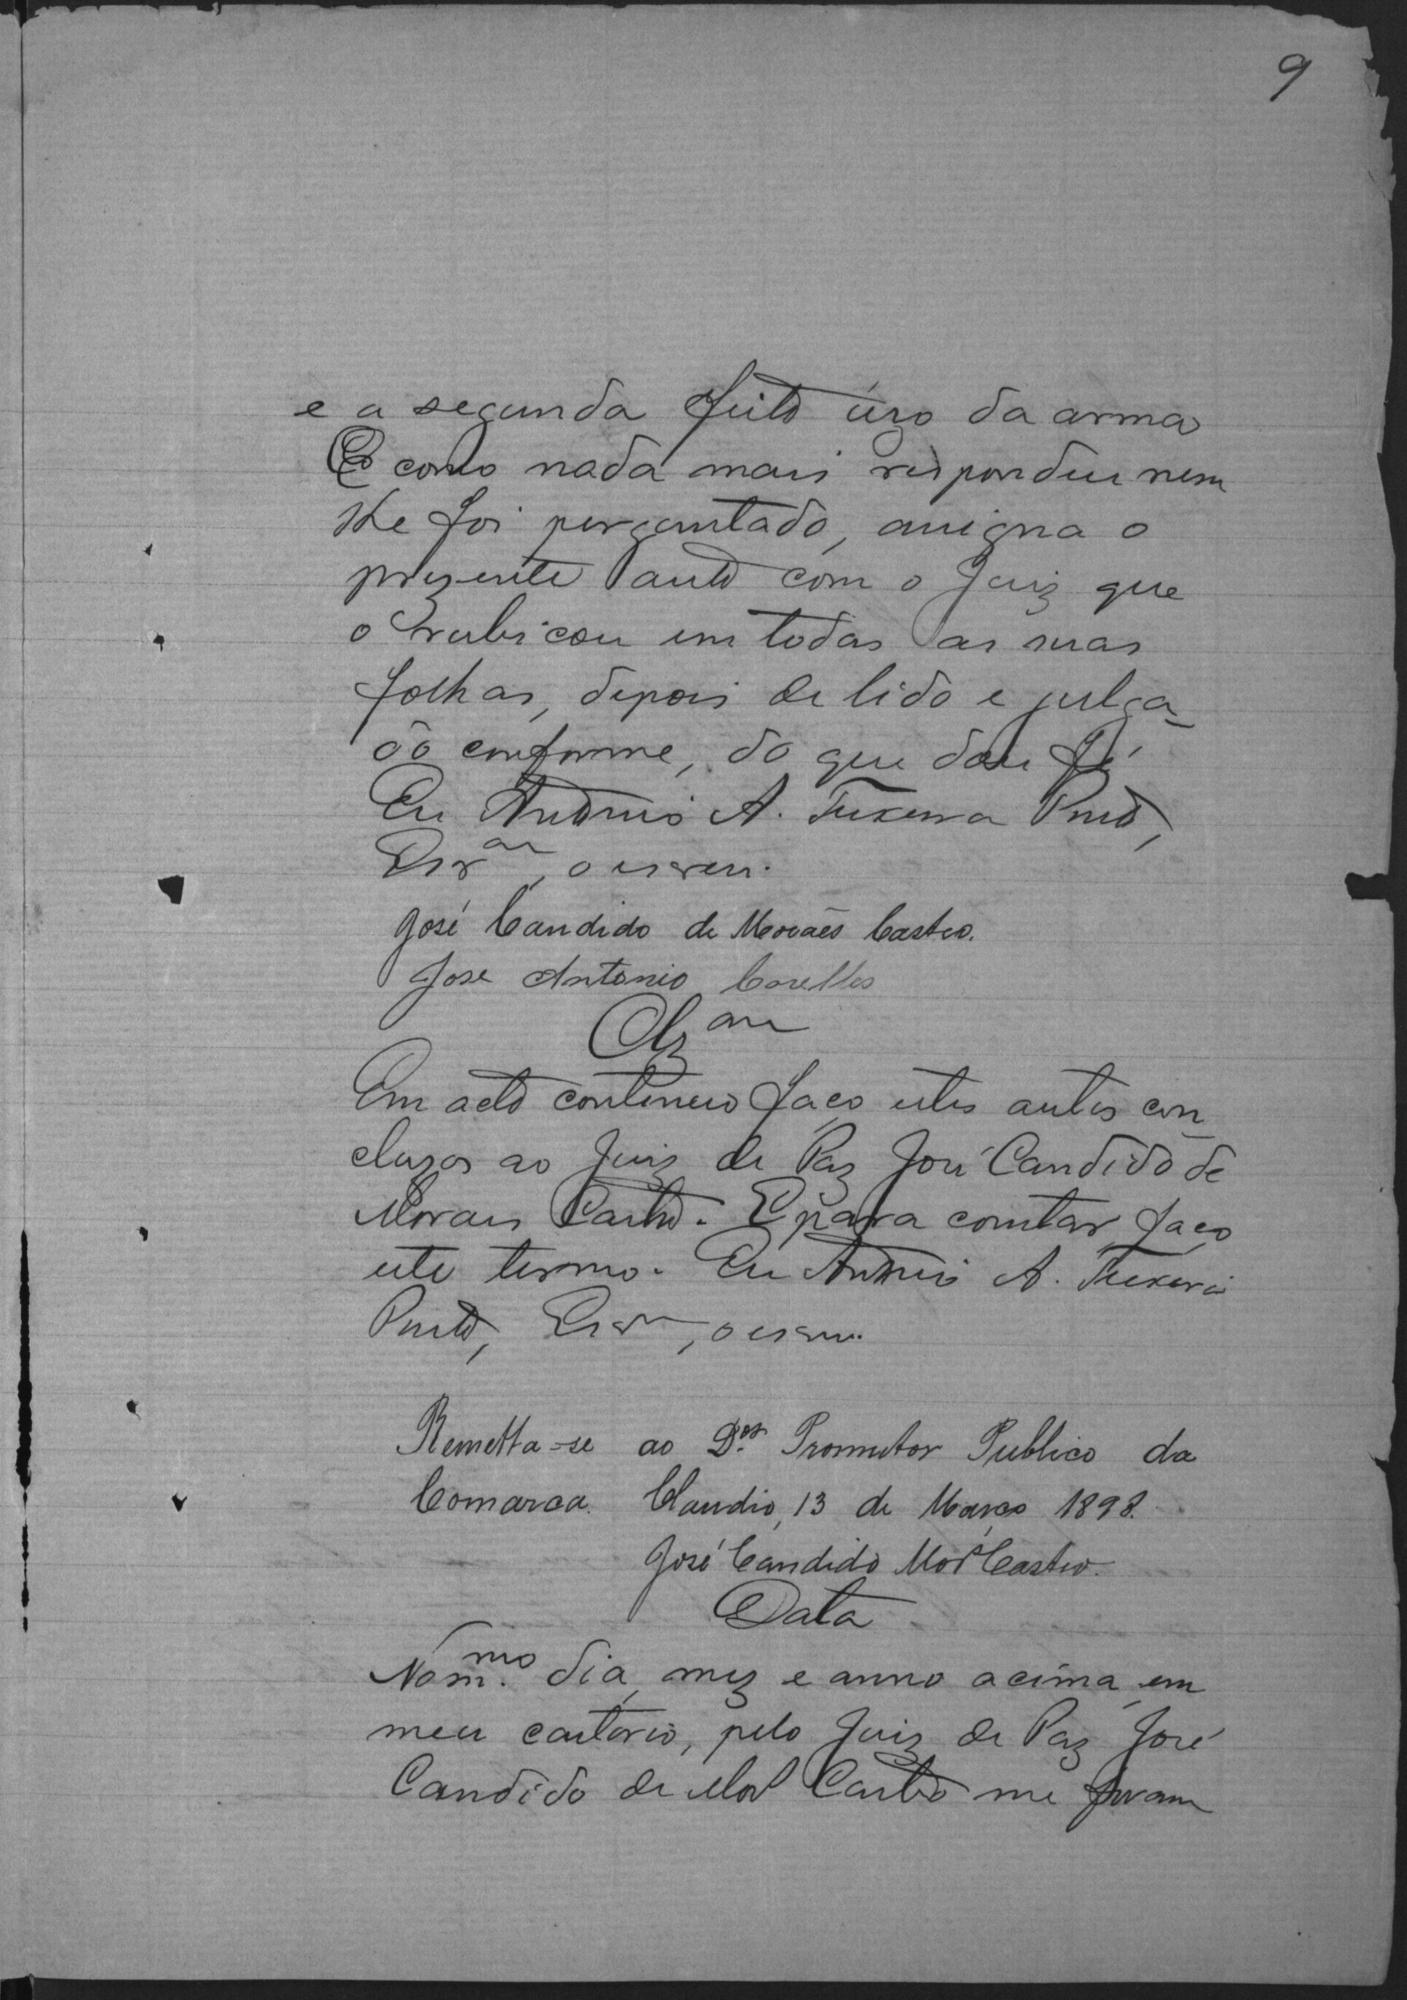 9
e a segunda feito úzo da arma
E como nada mais respondeu nem
lhe foi perguntado, assigna o
prezente auto com o Juiz que
o rubricou em todas as suas
folhas, depois de lido e julga-
do conforme, do que dou fé.
Eu Antonio A. Teixeira Pinto,
Escr.am, o escrevi.
José Candido de Moraes Castro.
Jose Antonio
Clz.am
Em acto continuo faço estes autos con
cluzos ao Juiz de Paz José Candido de
Morais Castro. E para constar faço
este termo. Eu Antonio A. Teixeira
Pinto, Escram, o escrevi.
Remetta-se ao Dor. Promutor Publico da
Comarca. Claudio, 13 de Março 1898.
José Candido Mors Castro.
Data
No mm.mo dia, mez e anno acima, em
meu cartorio, pelo Juiz de Paz José
Candido de Mors Castro me foram